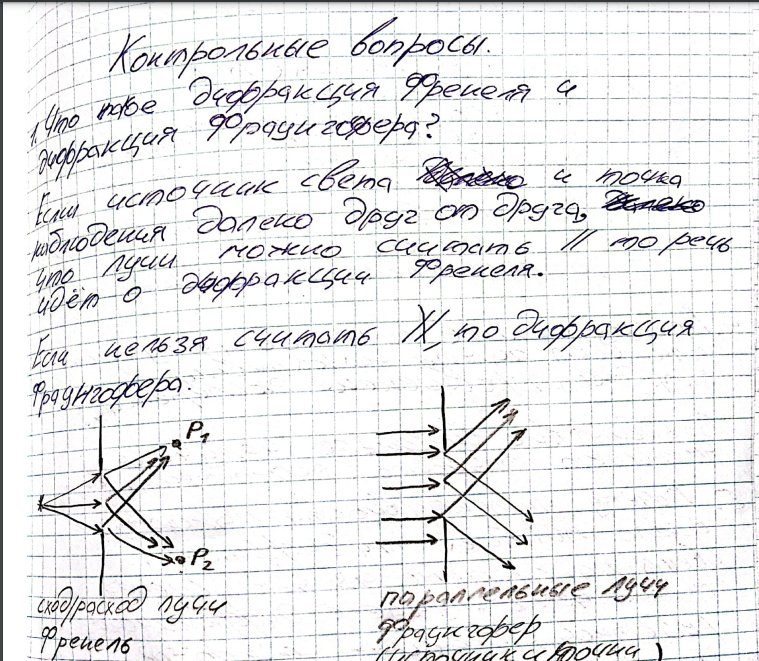 Контрольные вопросы.
1. Что такое дифракция Френеля и
дифракция Фраунгофера?
Если источник света и точка
наблюдения далеко друг от друга,
что лучи можно считать // то речь
идёт о дифракции Френеля.
Если нельзя считать //, то дифракция
Фраунгофера.
P1
P2
сход/расход лучи
Френель
параллельные лучи
Фраунгофер
(источник и точки)